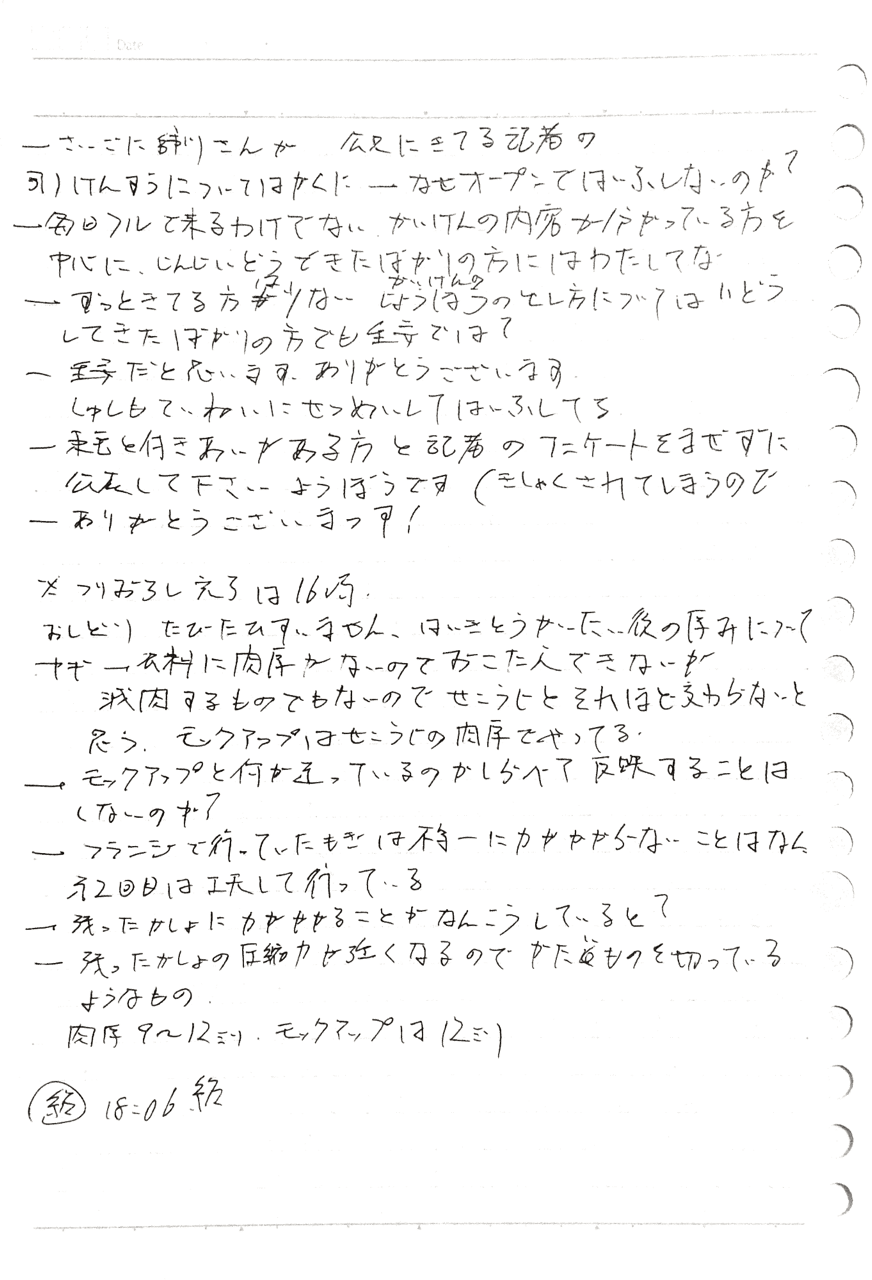 Date
— さいごに さんが 公に きてる記者の
けんすうについてはかくに — なぜオープンではいふしないのか?
— 毎日フルで来るわけでない かいけんの内容が分かっている方を
中心に、じんじいどうできたばかりの方にはわたしてな
かいけんの
— ずっときてる方 りない じょうほうの し方については いどう
してきたばかりの方でも では?
— だと思います。ありがとうございます。
しゅしもていねいにせつめいしてはいふしてる
— 東電と付きあいがある方と記者のアンケートをまぜずに
公表して下さい ようぼうです (きしゃくされてしまうので
— ありがとうございまっす!
※ つりおろし は16時.
おしどり たびたびすいません、はいきとうかいたい後の厚みについて
— 衣料に肉厚がないのでおこたえできないが
減肉するものでもないので せこうじと それほど変わらないと
思う. モックアップはせこうじの肉厚でやってる.
— モックアップと何が違っているのかしらべて反映することは
しないのか?
— フランジで行っていたもぎは不等一に力がかからないことはなん
第2回目は工夫して行っている
— 残ったかしょに力が ることがなんこうしていると?
— 残ったかしょの圧縮力が強くなるので かたいものを切っている
ようなもの.
肉厚9〜12ミリ. モックアップは12ミリ
(終) 18:06 終